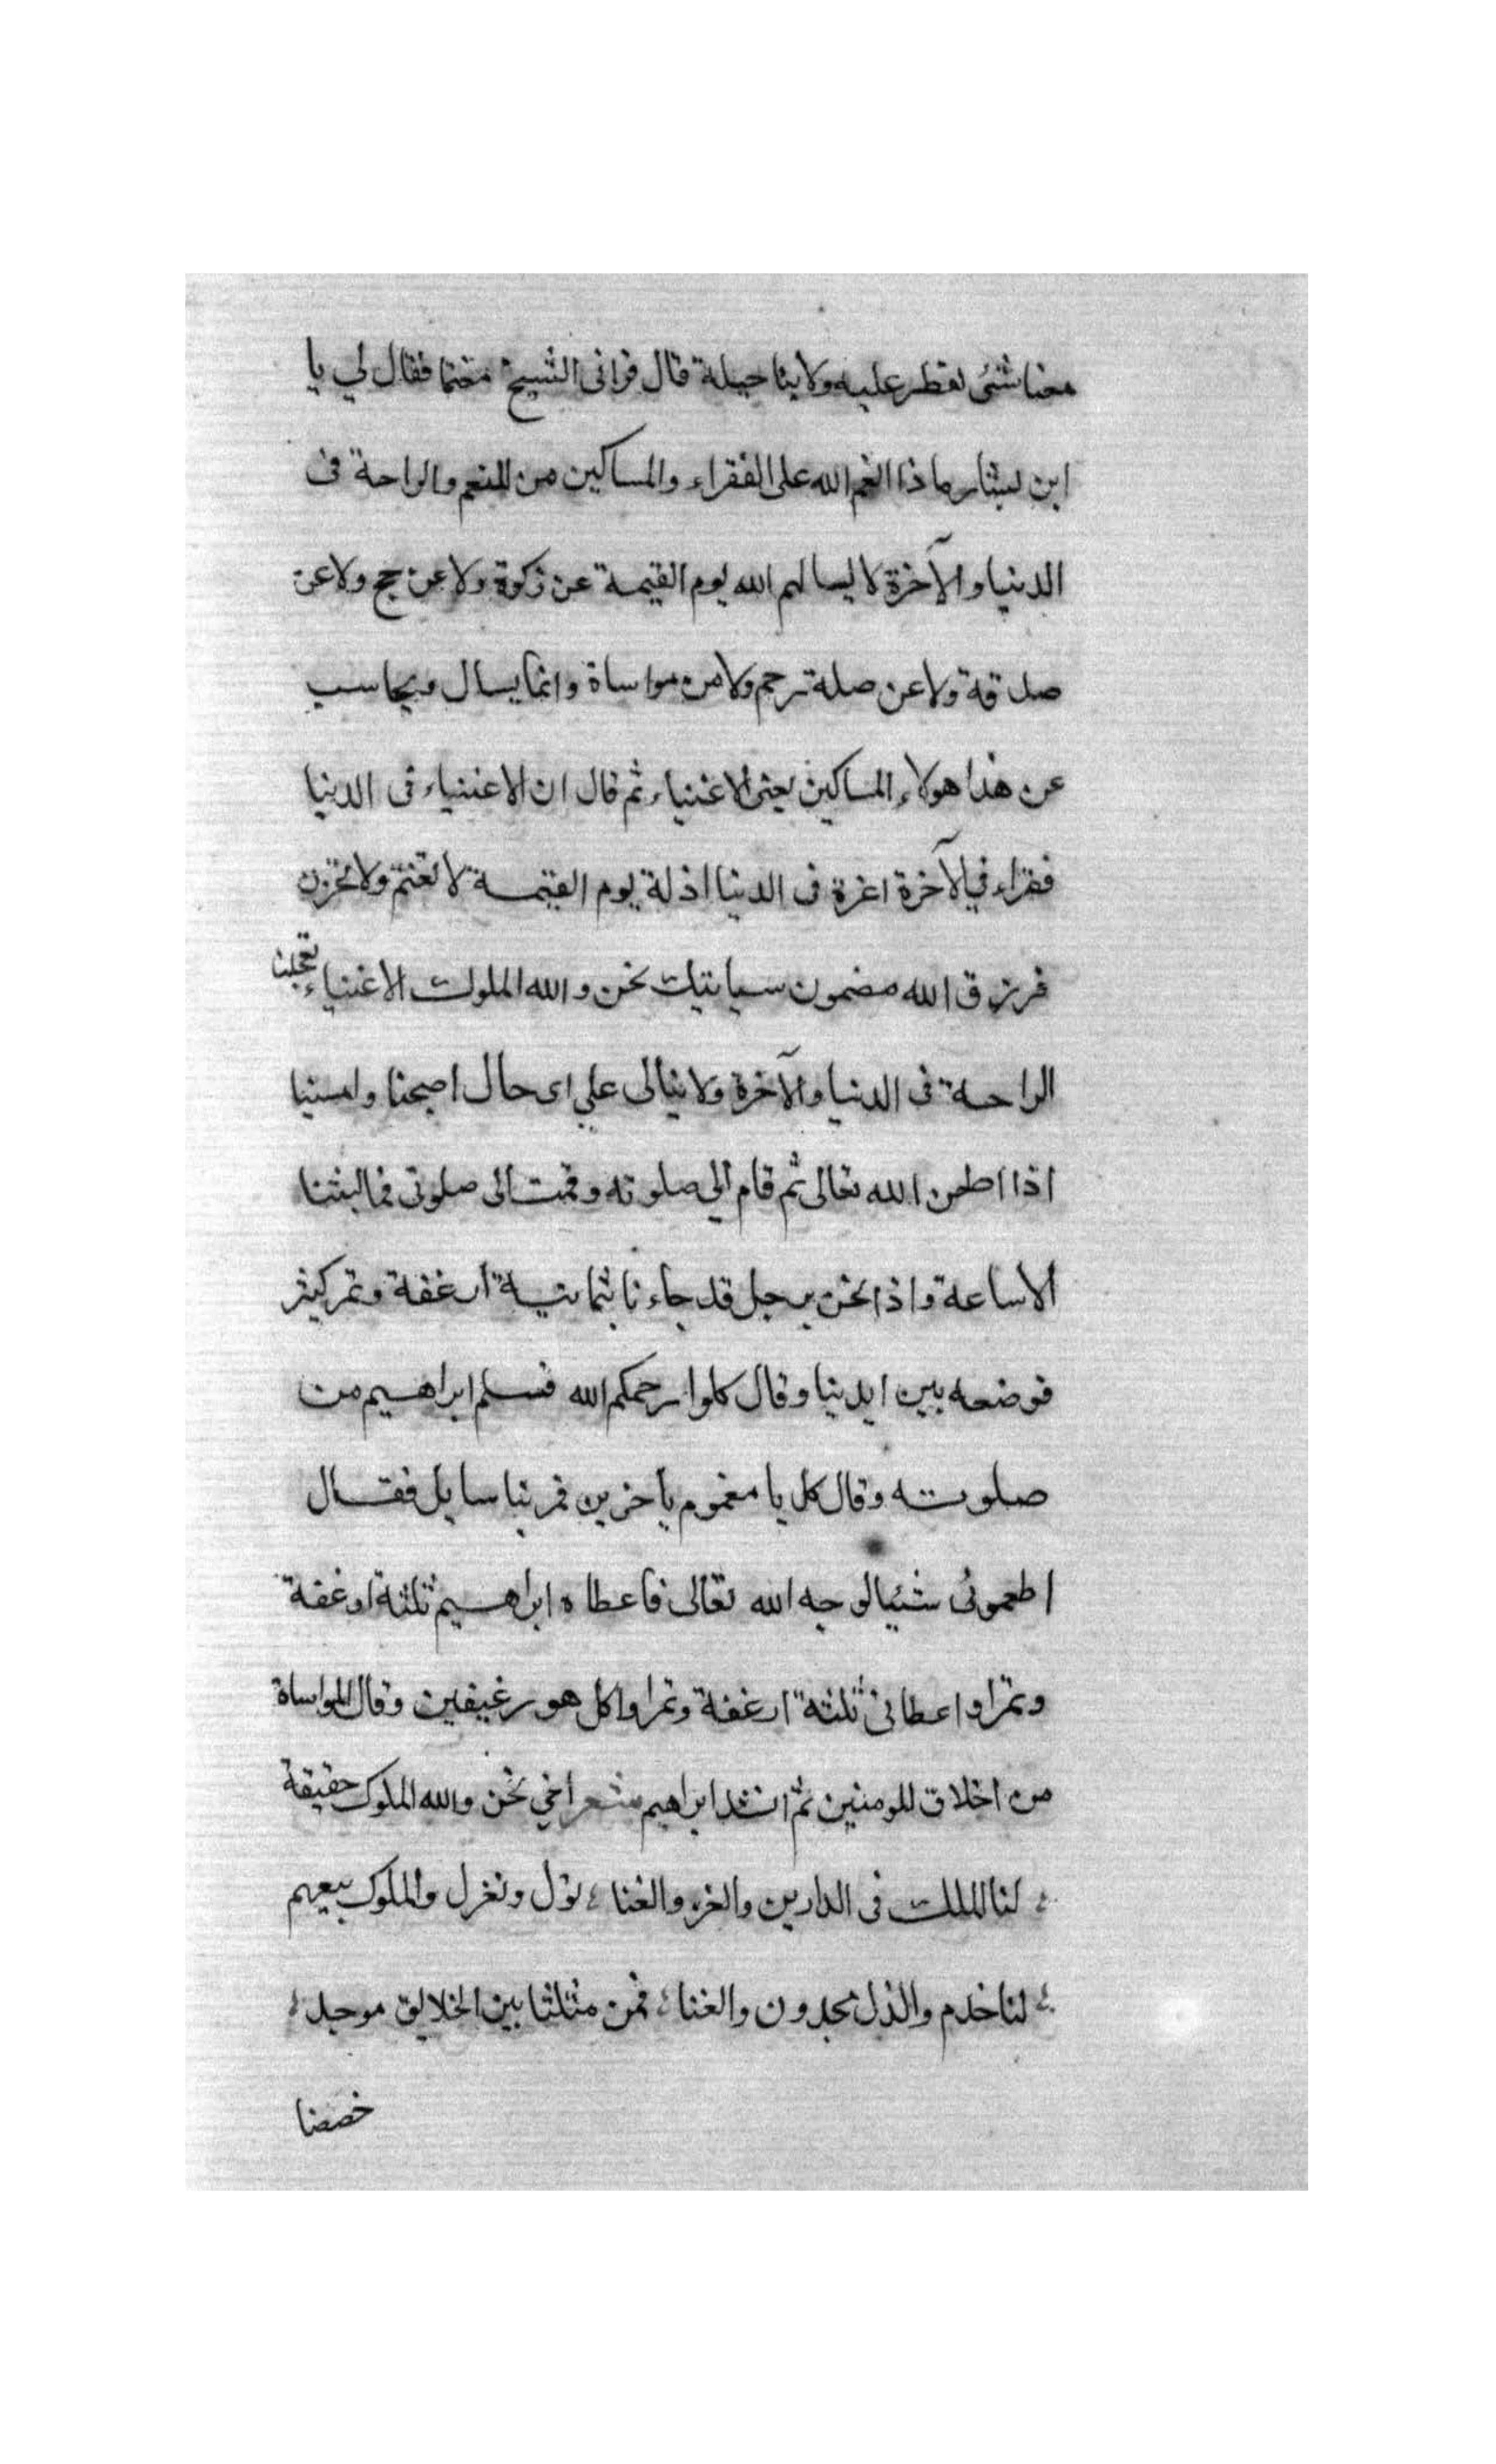 معنا شئ نفطر عليه ولا بنا حيلة قال فرانى الشيخ مغتما فقال لي يا
ابن بشار ماذا انعم الله على الفقراء والمساكين من النعم والراحة فى
الدنيا والآخرة لا يسالهم الله يوم القيمة عن زكوة ولا عن حج ولا عن
صدقة ولا عن صلة رحم ولا من مواساة وانما يسال ويحاسب
عن هذا هولاء المساكين يعنى الاغنياء ثم قال ان الاغنياء فى الدنيا
فقراء في الآخرة اعزة فى الدنيا اذلة يوم القيمة لا تغتم ولا تحزن
فرزق الله مضمون سياتيك نحن والله الملوك الاغنياء تعجلنا
الراحة فى الدنيا والآخرة ولا نبالى علي اى حال اصبحنا وامسينا
اذا اطعن الله تعالى ثم قام الي صلوته وقمت الى صلوتى فما لبثنا
الا ساعة واذا نحن برجل قد جاءنا بثمانية ارغفة وتمر كثير
فوضعه بين ايدينا وقال كلوا رحمكم الله فسلم ابراهيم من
صلوته وقال كل يا مغموم يا حزين فمر بنا سايل فقال
اطعمونى شيئا لوجه الله تعالى فاعطاه ابراهيم ثلثة ارغفة
وتمرا واعطانى ثلثة ارغفة وتمرا واكل هو رغيفين وقال المواساة
من اخلاق المومنين ثم انشد ابراهيم شعر اخي نحن والله الملوك حقيقة
لنا الملك فى الدارين والعز والغنا نول ونعزل والملوك بيعهم
لنا خدم والذل يجدون والعنا فمن مثلنا بين الخلايق موحد
خصصنا